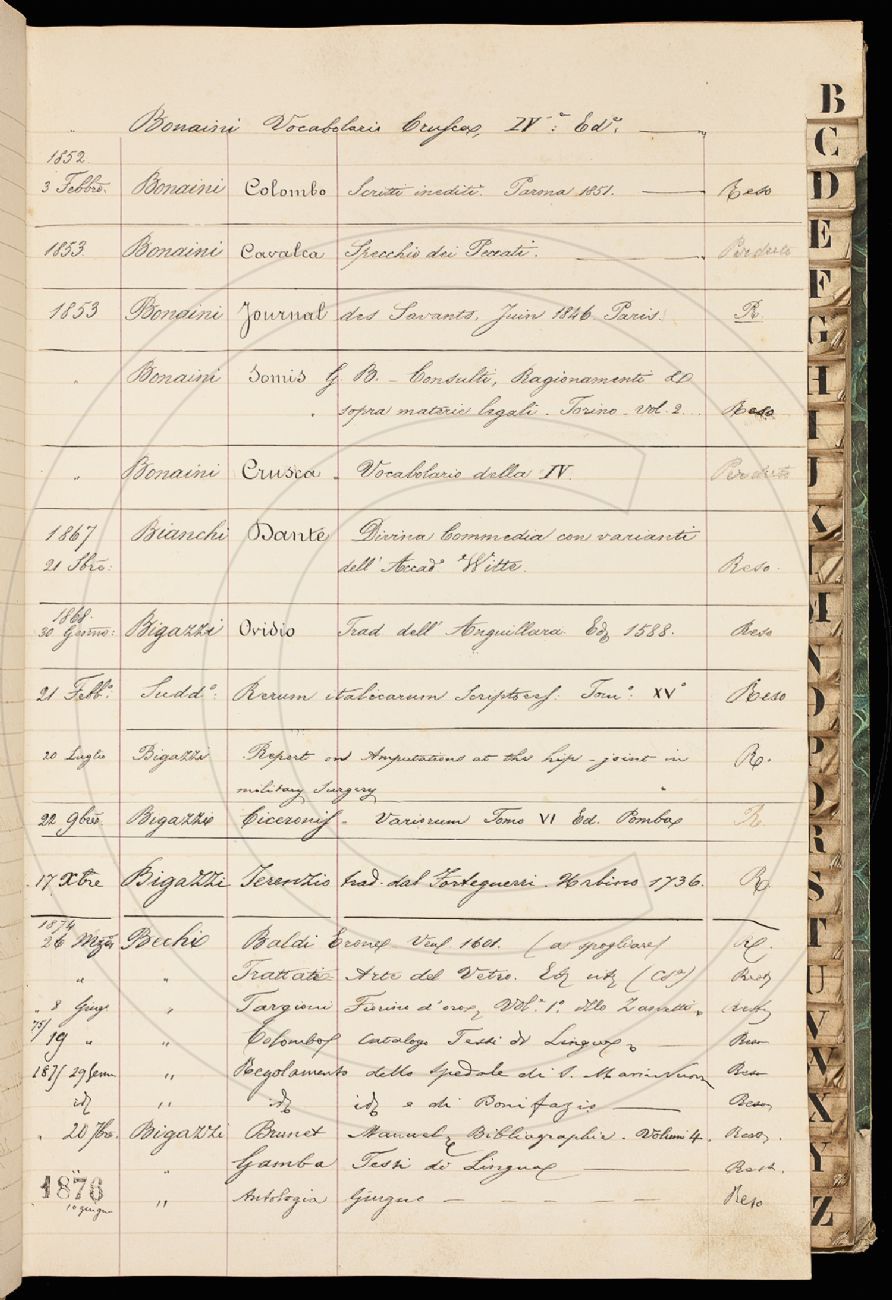 " Bonaini Vocabolario Crusca, IVª: Edª. "
1852
3 Febbro. Bonaini Colombo Scritti inediti. Parma 1851. Reso
1853 Bonaini Cavalca Specchio dei Peccati. Perduto
1853 Bonaini Journal des Savants. Juin 1846. Paris. R.
" Bonaini Somis G. B. - Consulti, Ragionamenti &
sopra materie legali. Torino. vol. 2. Reso
" Bonaini Crusca Vocabolario della IV. Perduto
1867 Bianchi Dante Divina Commedia con varianti
21 dell' Accadº Witte. Reso
1868.
30 Bigazzi Ovidio Trad dell' Anguillara. Ed. 1588. Reso
21 Febbº. Suddº: Rerum italicarum Scriptores: Tomº. XVº Reso
20 Luglio Bigazzi Report on Amputations at the hip-joint in R.
military Surgery
22 9bre. Bigazzi Ciceronis - Variorum Tomo VI Ed. Pomba R
17 Xbre Bigazzi Terenzio trad. dal Forteguerri. Urbino 1736. R.
1874
26 Bechi Baldi Erone Ven. 1601. (a spogliare) R.
" " Trattati Arte del Vetro. Reso
" 8 Giug. " Targioni Volº. 1º. Reso
75/
19 " " Colombo Catalogo Testi di Lingua Reso
1875 29 Genn. " Regolamento dello Spedale di S. Maria Nuova Reso
id " id id e di Bonifazio Reso
" 20 Bigazzi Brunet Manuel Bibliographie. Volumi 4. Reso
" " Gamba Testi di Lingua Rest.
1876
10 giugno " Antologia Giugno Reso
B
C
D
E
F
G
H
I
J
K
L
M
N
O
P
Q
R
S
T
U
V
W
X
Y
Z